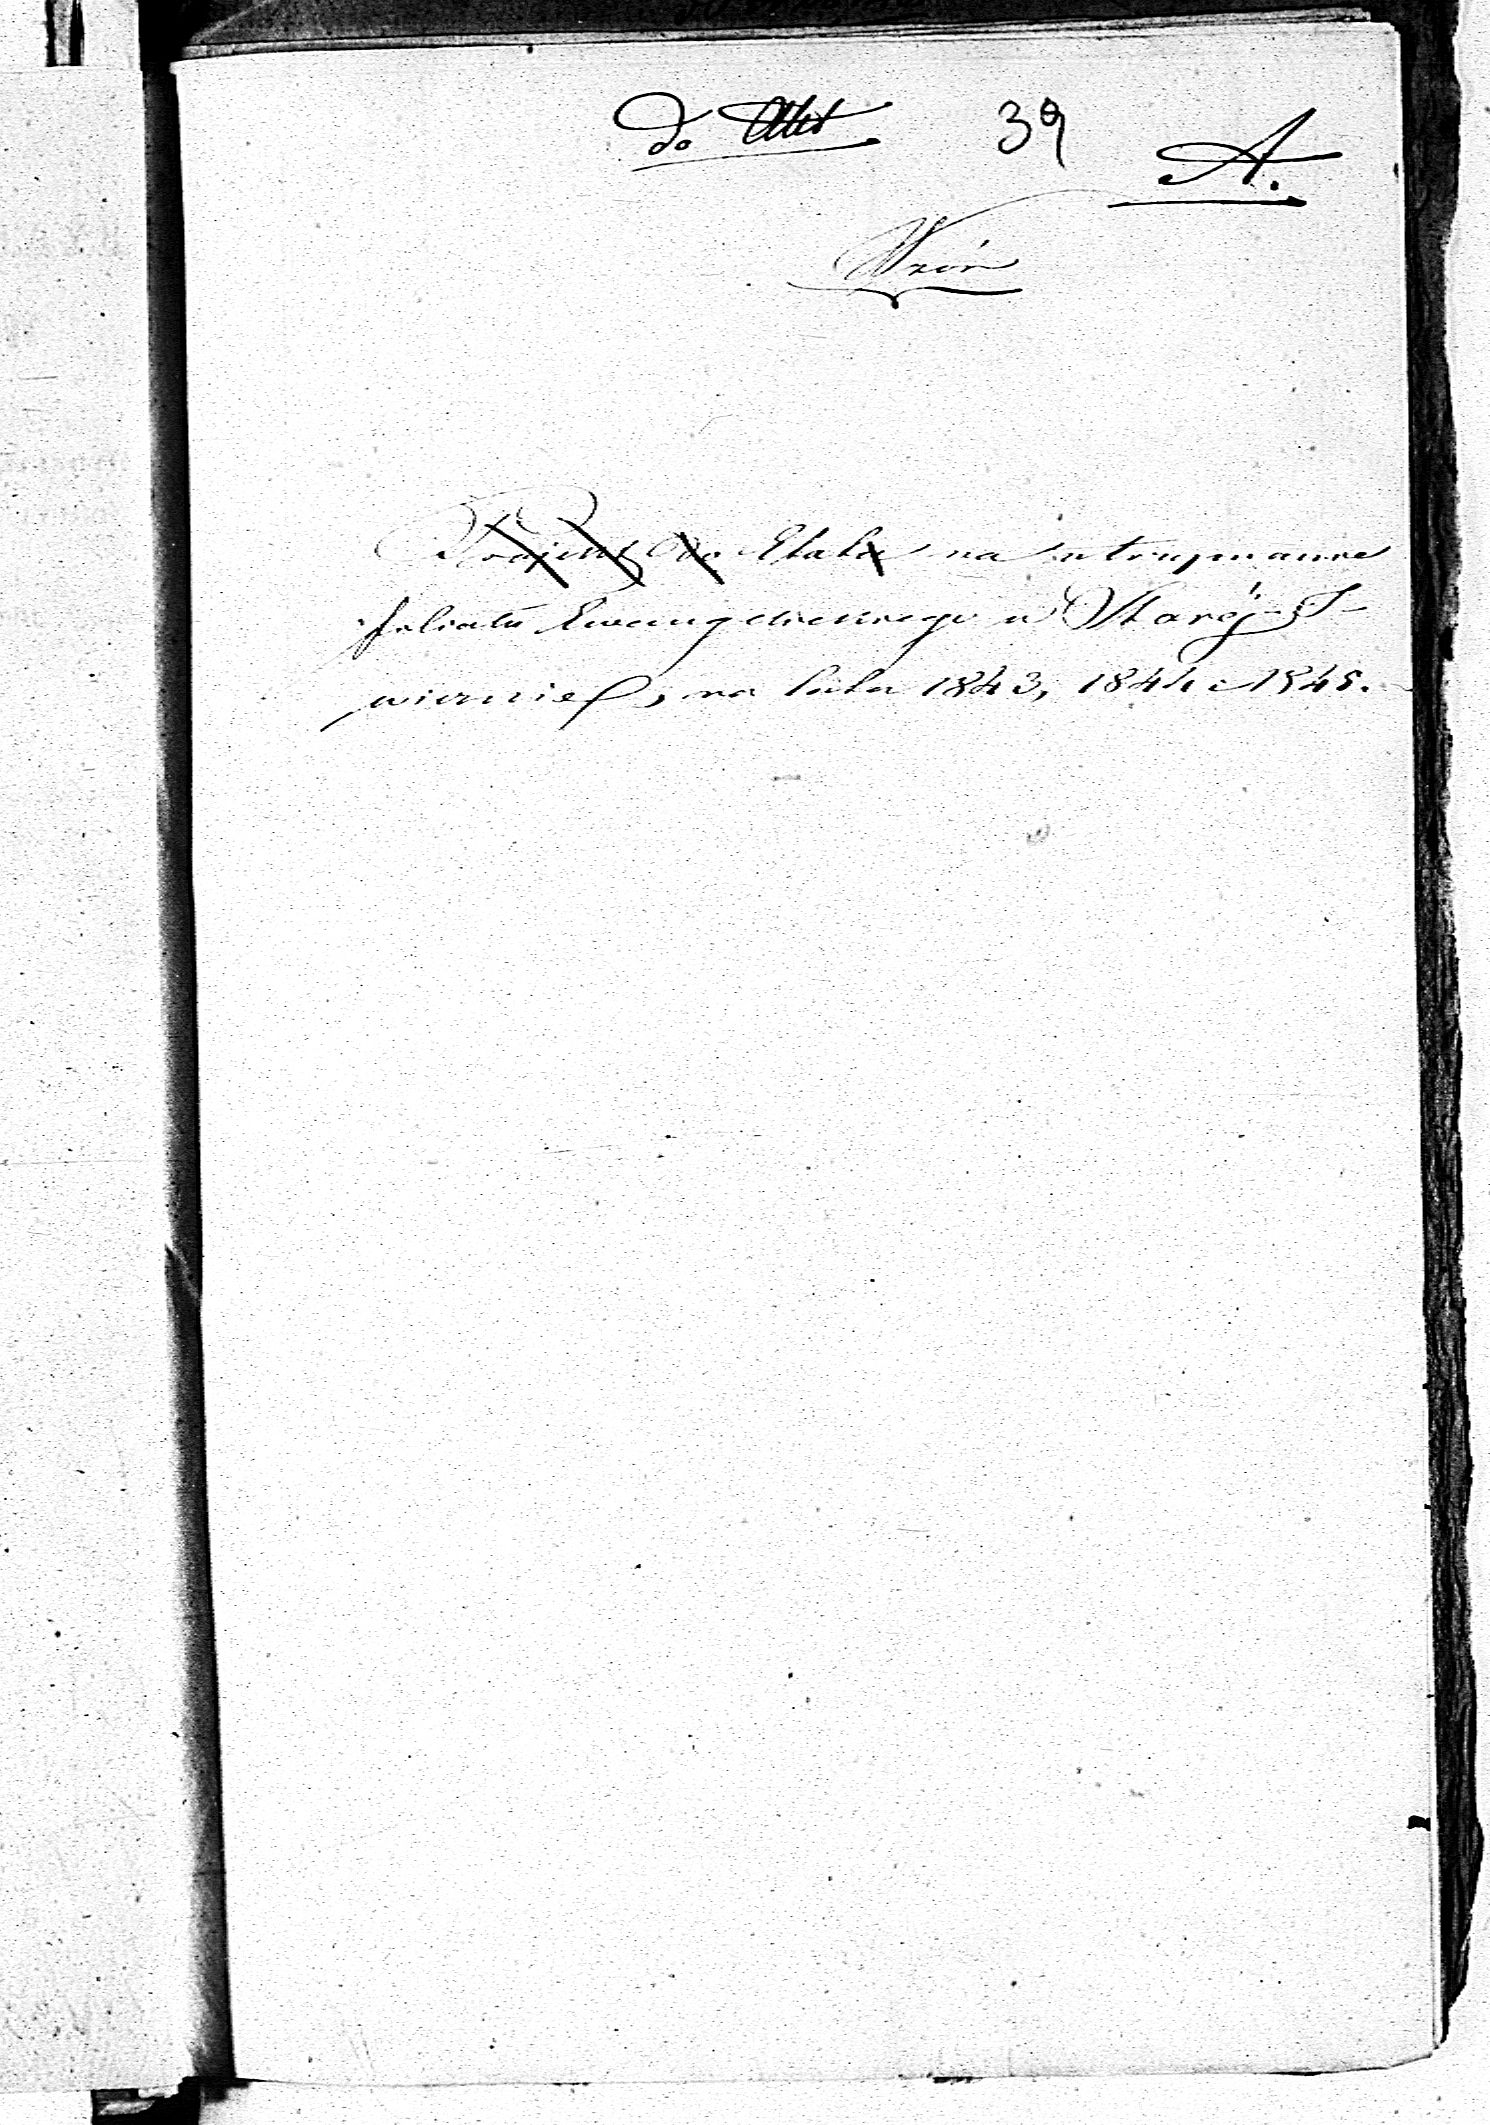 do Akt 39 A.
Wzór
Projekt do Etatu na utrzymanie
filiatu Ewangelickiego w Staréj-I-
wicznéj, na lata 1843, 1844 i 1845.